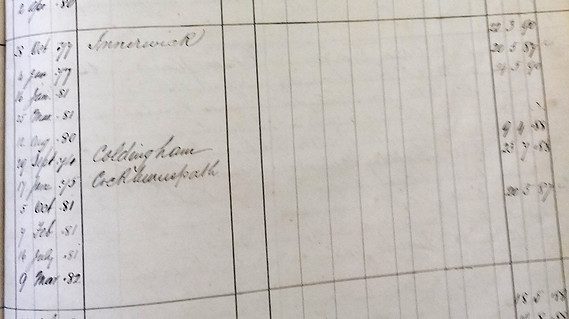 2 Apr .80
28 Oct .77 Innerwick 22 3 90
4 Jan .77 20 5 87
16 Jan .81
25 Mar .81
12 Aug .80 9 4 .88
29 Sept .74 Coldingham 23 7 .88
17 Jan .75 Cockburnspath
5 Oct .81 20 5 87
7 Feb .81
16 July .81
9 Mar .82
18 5 .88